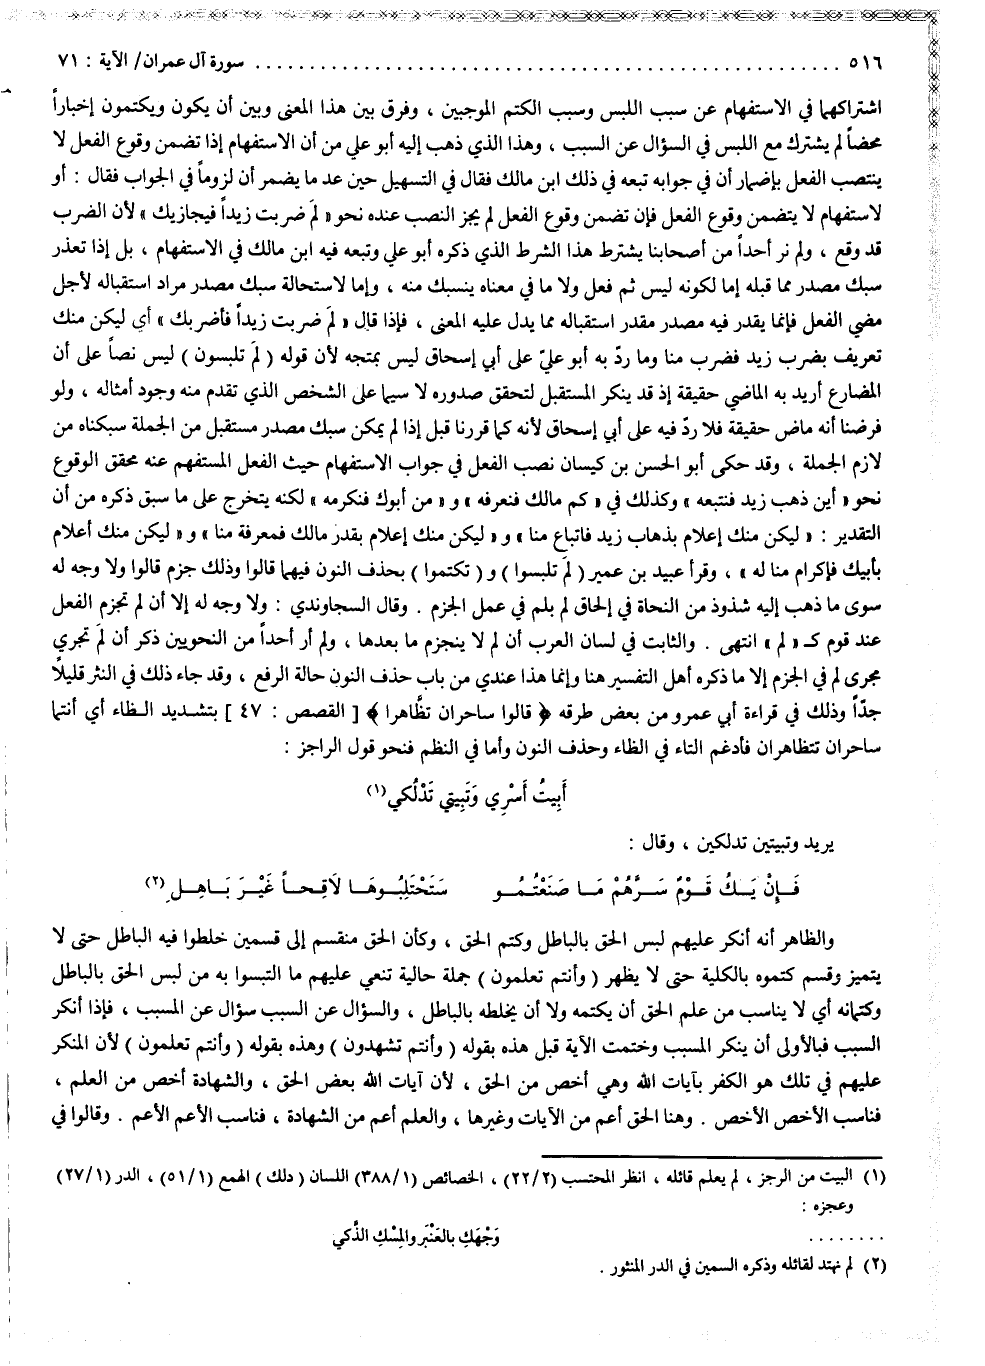 ٥١٦ ........................................................ سورة آل عمران/ الآية : ٧١
اشتراكهما في الاستفهام عن سبب اللبس وسبب الكتم الموجبين ، وفرق بين هذا المعنى وبين أن يكون ويكتمون إخباراً
محضاً لم يشترك مع اللبس في السؤال عن السبب ، وهذا الذي ذهب إليه أبو علي من أن الاستفهام إذا تضمن وقوع الفعل لا
ينتصب الفعل بإضمار أن في جوابه تبعه في ذلك ابن مالك فقال في التسهيل حين عد ما يضمر أن لزوماً في الجواب فقال : أو
لاستفهام لا يتضمن وقوع الفعل فإن تضمن وقوع الفعل لم يجز النصب عنده نحو « لمَ ضربت زيداً فيجازيك » لأن الضرب
قد وقع ، ولم نر أحداً من أصحابنا يشترط هذا الشرط الذي ذكره أبو علي وتبعه فيه ابن مالك في الاستفهام ، بل إذا تعذر
سبك مصدر مما قبله إما لكونه ليس ثم فعل ولا ما في معناه ينسبك منه ، وإما لاستحالة سبك مصدر مراد استقباله لأجل
مضي الفعل فإنما يقدر فيه مصدر مقدر استقباله مما يدل عليه المعنى ، فإذا قال « لمَ ضربت زيداً فأضربك » أي ليكن منك
تعريف بضرب زيد فضرب منا وما ردّ به أبو عليّ على أبي إسحاق ليس بمتجه لأن قوله ( لمَ تلبسون ) ليس نصاً على أن
المضارع أريد به الماضي حقيقة إذ قد ينكر المستقبل لتحقق صدوره لا سيما على الشخص الذي تقدم منه وجود أمثاله ، ولو
فرضنا أنه ماض حقيقة فلا ردّ فيه على أبي إسحاق لأنه كما قررنا قبل إذا لم يمكن سبك مصدر مستقبل من الجملة سبكناه من
لازم الجملة ، وقد حكى أبو الحسن بن كيسان نصب الفعل في جواب الاستفهام حيث الفعل المستفهم عنه محقق الوقوع
نحو « أين ذهب زيد فنتبعه » وكذلك في « كم مالك فنعرفه » و « من أبوك فنكرمه » لكنه يتخرج على ما سبق ذكره من أن
التقدير : « ليكن منك إعلام بذهاب زيد فاتباع منا » و « ليكن منك إعلام بقدر مالك فمعرفة منا » و « ليكن منك أعلام
بأبيك فإكرام منا له » ، وقرأ عبيد بن عمير ( لمَ تلبسوا ) و ( تكتموا ) بحذف النون فيهما قالوا وذلك جزم قالوا ولا وجه له
سوى ما ذهب إليه شذوذ من النحاة في إلحاق لم بلم في عمل الجزم . وقال السجاوندي : ولا وجه له إلا أن لم تجزم الفعل
عند قوم كـ « لم » انتهى . والثابت في لسان العرب أن لم لا ينجزم ما بعدها ، ولم أر أحداً من النحويين ذكر أن لمَ تجري
مجرى لم في الجزم إلا ما ذكره أهل التفسير هنا وإنما هذا عندي من باب حذف النون حالة الرفع ، وقد جاء ذلك في النثر قليلاً
جدّاً وذلك في قراءة أبي عمرو من بعض طرقه ﴿ قالوا ساحران تظّاهرا ﴾ [ القصص : ٤٧ ] بتشديد الظاء أي أنتما
ساحران تتظاهران فأدغم التاء في الظاء وحذف النون وأما في النظم فنحو قول الراجز :
أَبِيتُ أَسْرِي وَتَبِيتِي تَدْلُكي(١)
يريد وتبيتين تدلكين ، وقال :
فَإِنْ يَكُ قَوْمٌ سَرَّهُمْ مَا صَنَعْتُمُو سَتَحْتَلِبُوهَا لَاقِحاً غَيْرَ بَاهِلِ (٢)
والظاهر أنه أنكر عليهم لبس الحق بالباطل وكتم الحق ، وكأن الحق منقسم إلى قسمين خلطوا فيه الباطل حتى لا
يتميز وقسم كتموه بالكلية حتى لا يظهر ( وأنتم تعلمون ) جملة حالية تنعي عليهم ما التبسوا به من لبس الحق بالباطل
وكتمانه أي لا يناسب من علم الحق أن يكتمه ولا أن يخلطه بالباطل ، والسؤال عن السبب سؤال عن المسبب ، فإذا أنكر
السبب فبالأولى أن ينكر المسبب وختمت الآية قبل هذه بقوله ( وأنتم تشهدون ) وهذه بقوله ( وأنتم تعلمون ) لأن المنكر
عليهم في تلك هو الكفر بآيات الله وهي أخص من الحق ، لأن آيات الله بعض الحق ، والشهادة أخص من العلم ،
فناسب الأخص الأخص . وهنا الحق أعم من الآيات وغيرها ، والعلم أعم من الشهادة ، فناسب الأعم الأعم . وقالوا في
(١) البيت من الرجز ، لم يعلم قائله ، انظر المحتسب (٢٢/٢) ، الخصائص (٣٨٨/١) اللسان ( دلك ) الهمع (٥١/١) ، الدر (٢٧/١)
وعجزه :
........ وَجْهَكِ بالعَنْبَر والمِسْكِ الذَّكي
(٢) لم نهتد لقائله وذكره السمين في الدر المنثور .